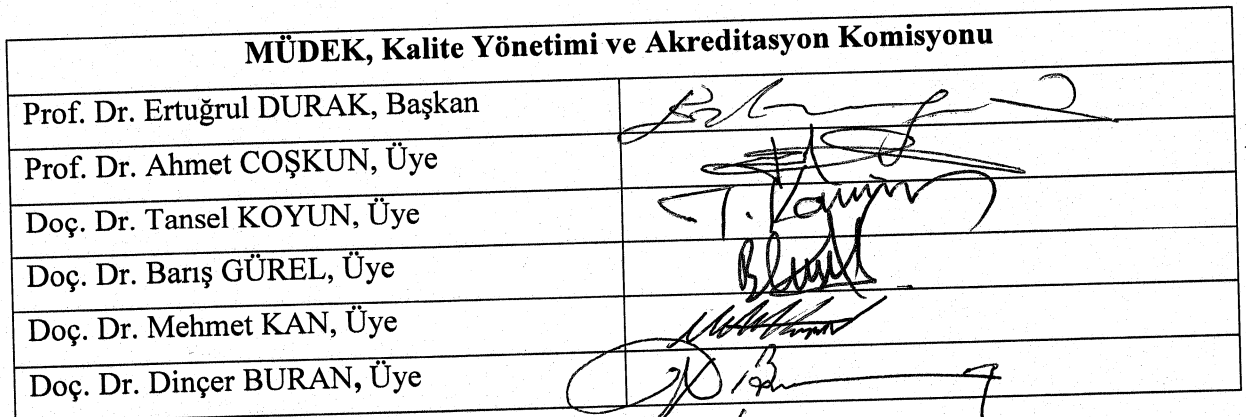 MÜDEK, Kalite Yönetimi ve Akreditasyon Komisyonu
Prof. Dr. Ertuğrul DURAK, Başkan
Prof. Dr. Ahmet COŞKUN, Üye
Doç. Dr. Tansel KOYUN, Üye
Doç. Dr. Barış GÜREL, Üye
Doç. Dr. Mehmet KAN, Üye
Doç. Dr. Dinçer BURAN, Üye